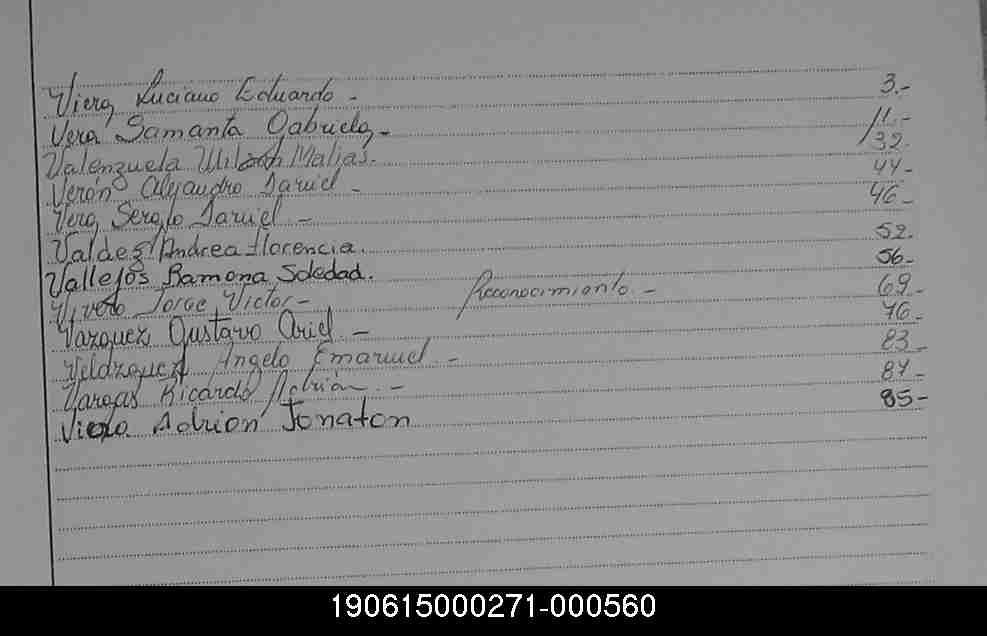 Viera Luciano Eduardo - 3.-
Vera Samanta Gabriela - 11.-
Valenzuela Matias. 32.
Veron Alejandro Daniel - 44-
Vera Sergio Daniel - 46-
Valdez Andrea Florencia. 52.
Vallejos Ramona Soledad. 56-
Jorge Victor - Reconocimiento. - 69-
Vazquez Gustavo Ariel - 76-
Velazquez Angelo Emanuel - 83-
Vargas Ricardo Adrián. - 84-
Adrion Jonaton 85-
190615000271-000560